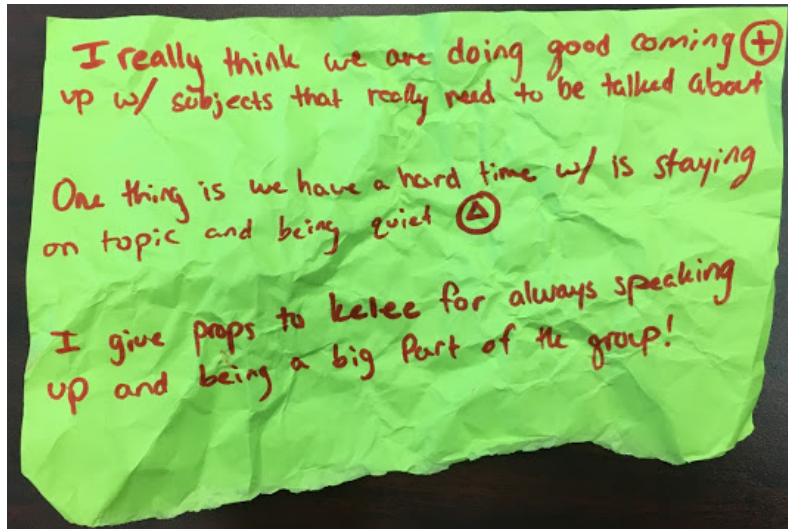 I really think we are doing good coming ⊕
up w/ subjects that really need to be talked about
One thing is we have a hard time w/ is staying
on topic and being quiet
I give props to kelee for always speaking
up and being a big Part of the group!